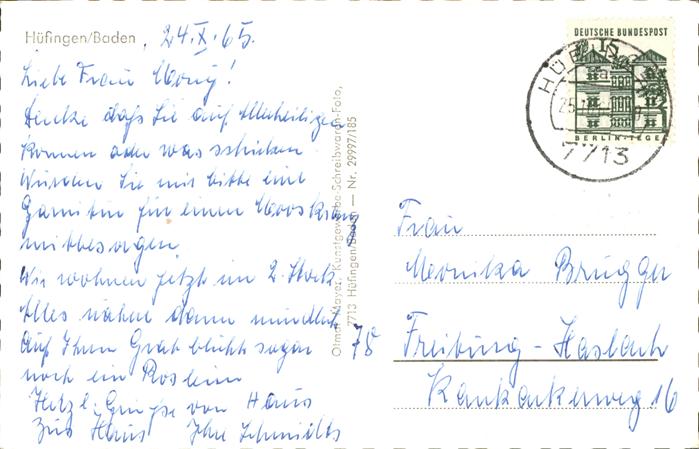 Hüfingen/Baden, 24.X.65.
Liebe Frau
Denke daß Sie auf Allerheiligen
kommen oder was schicken
Würden Sie mir bitte eine
Garnitur für einen Mooskranz
mitbesorgen.
Wir wohnen jetzt im 2. Stock
Alles nähere dann mündlich
Auf Ihrem Grab blüht sogar
noch ein Röslein
Herzl. Grüße von Haus
zu Haus Ihre Schmidts
Olmar Mayer, Kunstgewerbe-Schreibwaren-Foto,
7713 Hüfingen/Baden — Nr. 29997/185
DEUTSCHE BUNDESPOST
15
BERLIN-TEGEL
HÜFINGEN
a
7713
Frau
Monika Brugger
78 Freiburg-Haslach
16